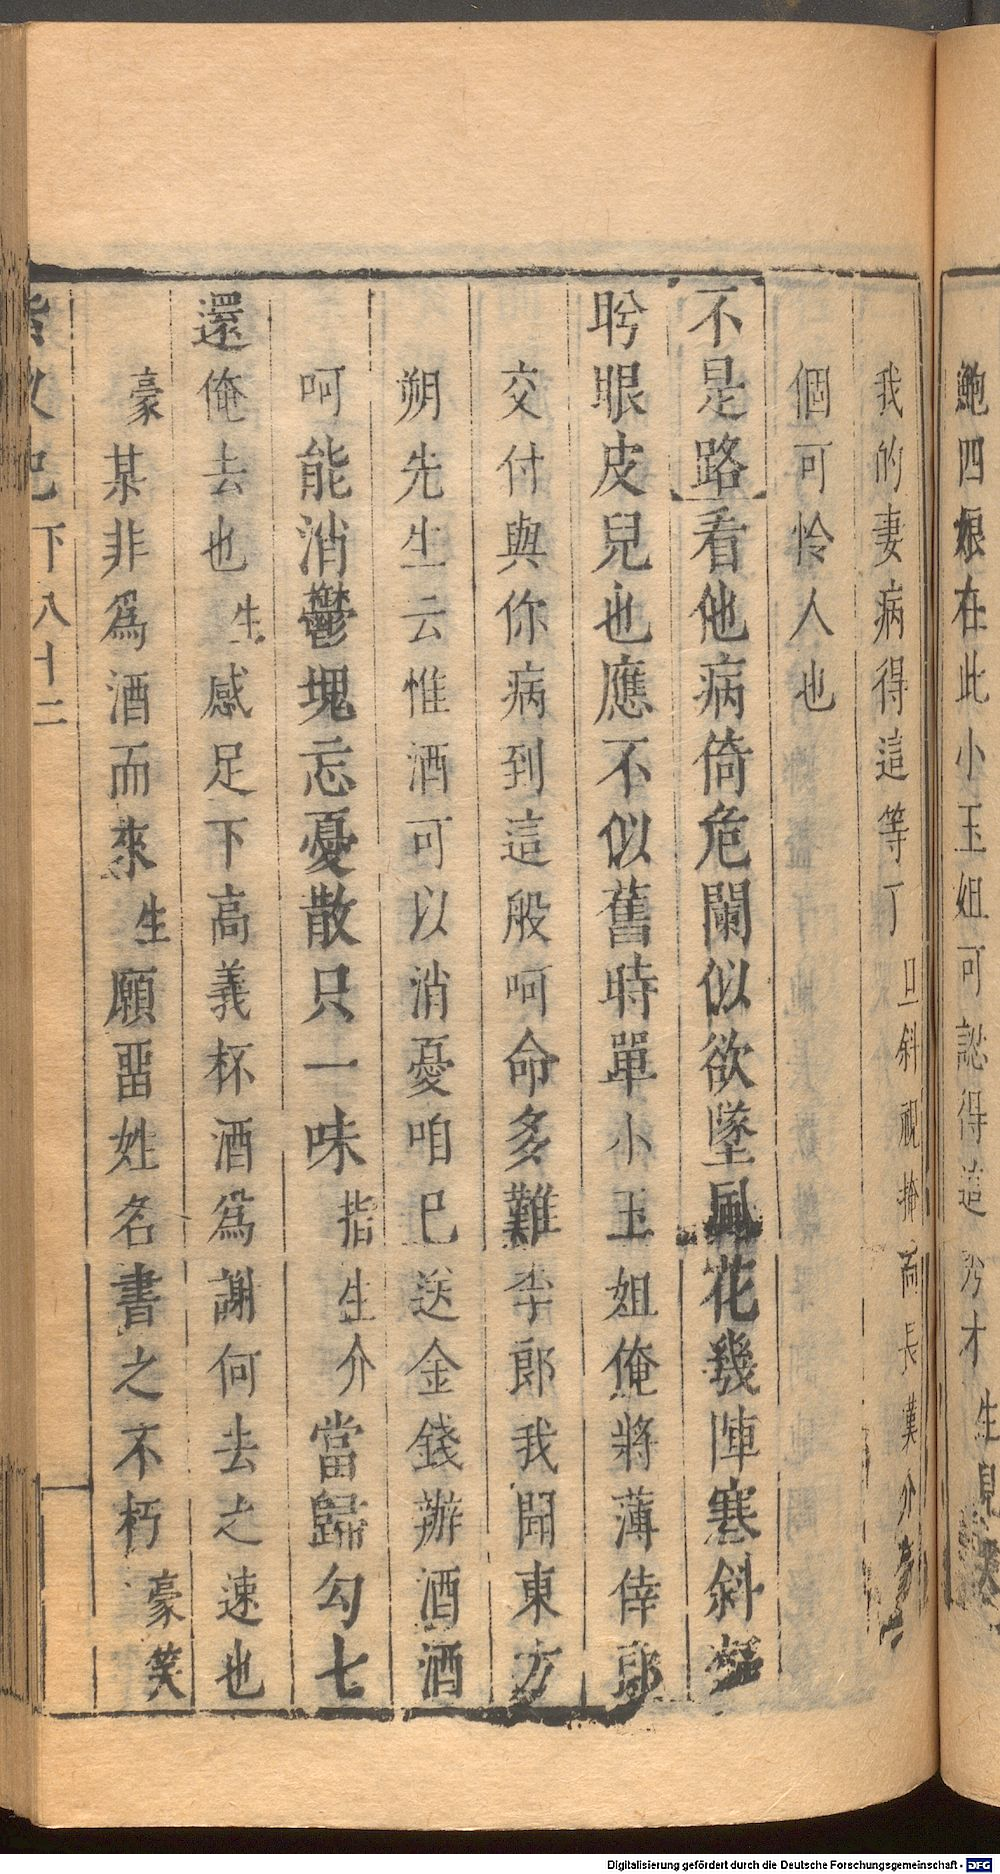 鮑四娘在此小玉姐可認得這 生見
我的妻病得這等了旦斜視掩面長嘆介豪
個可怜人也
不是路看他病倚危闌似欲墜風花幾陣寒斜
盻眼皮兒也應不似舊時單小玉姐俺將薄倖郎
交付與你病到這般呵命多難李郎我聞東方
朔先生云惟酒可以消憂咱已送金錢辦酒酒
呵能消鬱塊忘憂散只一味指生介當歸勾七
還俺去也生感足下高義杯酒為謝何去之速也
豪某非為酒而來生願畱姓名書之不朽豪笑
紫釵記下八十二
Digitalisierung gefördert durch die Deutsche Forschungsgemeinschaft - DFG